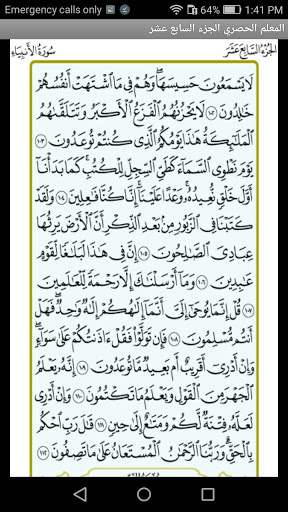 Emergency calls only 1:41 PM
المعلم الحصري الجزء السابع عشر
الجزء السابع عشر سورة الأنبياء
لَا يَسْمَعُونَ حَسِيسَهَا وَهُمْ فِي مَا اشْتَهَتْ أَنفُسُهُمْ
خَالِدُونَ ١٠٢ لَا يَحْزُنُهُمُ الْفَزَعُ الْأَكْبَرُ وَتَتَلَقَّاهُمُ
الْمَلَائِكَةُ هَٰذَا يَوْمُكُمُ الَّذِي كُنتُمْ تُوعَدُونَ ١٠٣
يَوْمَ نَطْوِي السَّمَاءَ كَطَيِّ السِّجِلِّ لِلْكُتُبِ كَمَا بَدَأْنَا
أَوَّلَ خَلْقٍ نُّعِيدُهُ وَعْدًا عَلَيْنَا إِنَّا كُنَّا فَاعِلِينَ ١٠٤ وَلَقَدْ
كَتَبْنَا فِي الزَّبُورِ مِن بَعْدِ الذِّكْرِ أَنَّ الْأَرْضَ يَرِثُهَا
عِبَادِيَ الصَّالِحُونَ ١٠٥ إِنَّ فِي هَٰذَا لَبَلَاغًا لِّقَوْمٍ
عَابِدِينَ ١٠٦ وَمَا أَرْسَلْنَاكَ إِلَّا رَحْمَةً لِّلْعَالَمِينَ
١٠٧ قُلْ إِنَّمَا يُوحَىٰ إِلَيَّ أَنَّمَا إِلَٰهُكُمْ إِلَٰهٌ وَاحِدٌ فَهَلْ
أَنتُم مُّسْلِمُونَ ١٠٨ فَإِن تَوَلَّوْا فَقُلْ آذَنتُكُمْ عَلَىٰ سَوَاءٍ
وَإِنْ أَدْرِي أَقَرِيبٌ أَم بَعِيدٌ مَّا تُوعَدُونَ ١٠٩ إِنَّهُ يَعْلَمُ
الْجَهْرَ مِنَ الْقَوْلِ وَيَعْلَمُ مَا تَكْتُمُونَ ١١٠ وَإِنْ أَدْرِي
لَعَلَّهُ فِتْنَةٌ لَّكُمْ وَمَتَاعٌ إِلَىٰ حِينٍ ١١١ قَالَ رَبِّ احْكُم
بِالْحَقِّ وَرَبُّنَا الرَّحْمَٰنُ الْمُسْتَعَانُ عَلَىٰ مَا تَصِفُونَ ١١٢